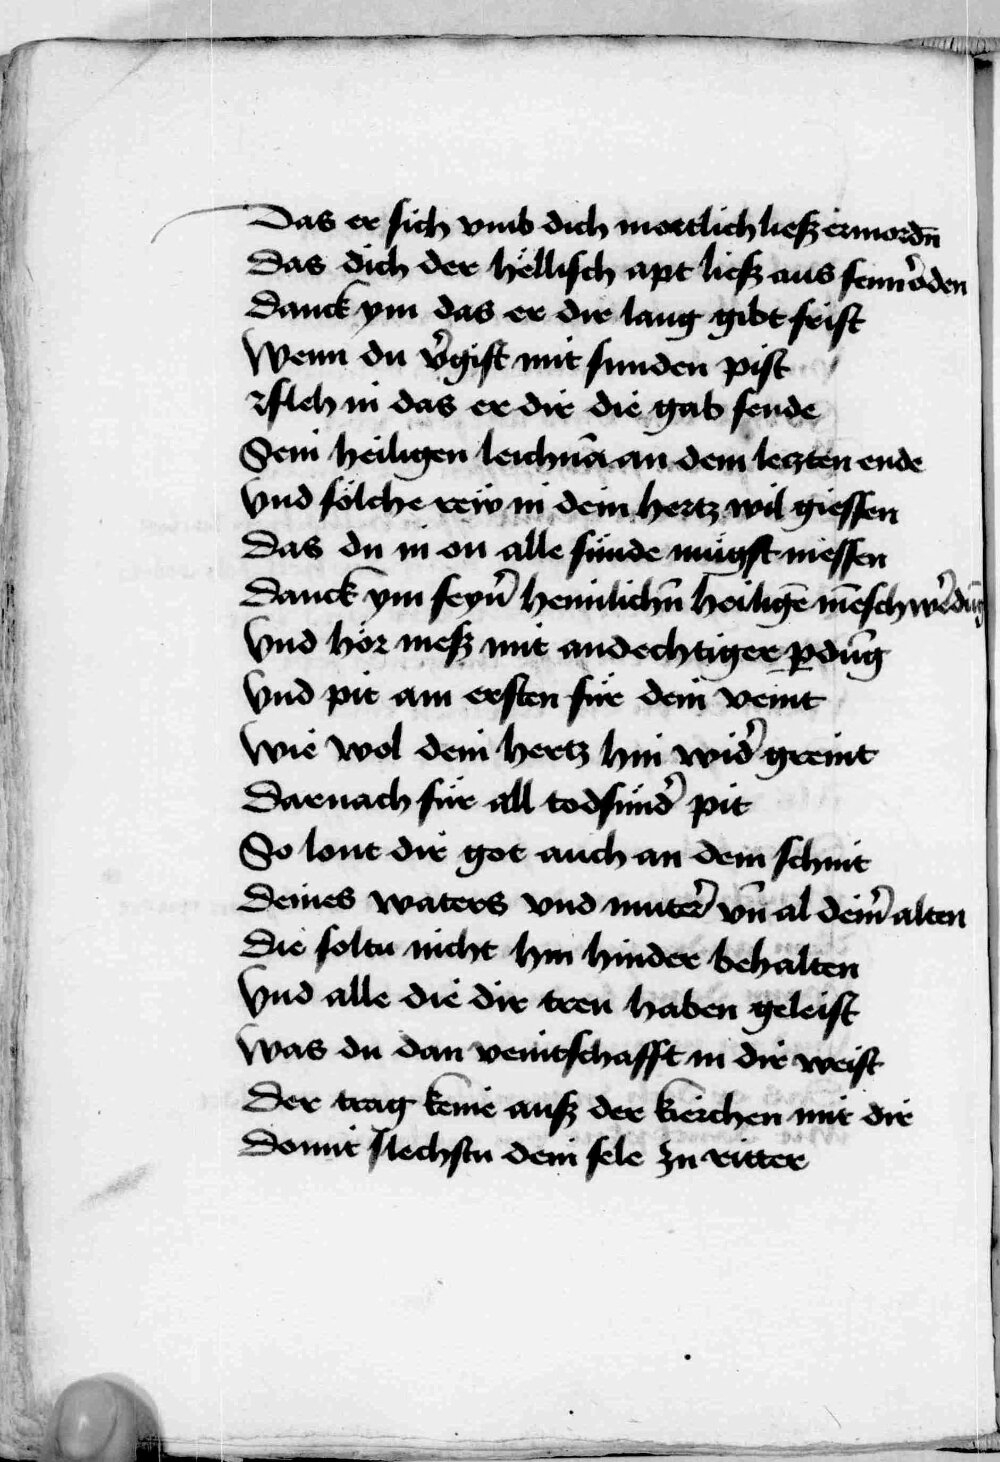 Das er sich vmb dich mortlich liesz ermordn̄
Das dich der hëllisch apt liesz aus seim ordden
Danck ym das er dir lang gibt frist
Wenn du v̾gift mit sunden pist
Vfleh in das er dir die gab sende
Sein heiligen leichnā an dem leczten ende
Vnd sölche rew in dein hertz wil giessen
Das du in on alle sünde mügst niessen
Danck ym seyn̾ heimlichn̄ heiligē mēschwerdūg
Vnd hör mesz mit andechtiger ꝑdūg
Vnd pit am ersten für dein veint
Wie wol dein hertz hin wid̾ greint
Darnach für all todsünd̾ pit
So lont dir got auch an dem schnit
Deines waters vnd muter̾ vn̄ al dein̾ alten
Die soltu nicht hin hinder behalten
Vnd alle die dir treu haben geleist
Was du dan veintschafft in dir weist
Der trag keine ausz der kirchen mit dir
Domit slechstu dein sele zu ritter